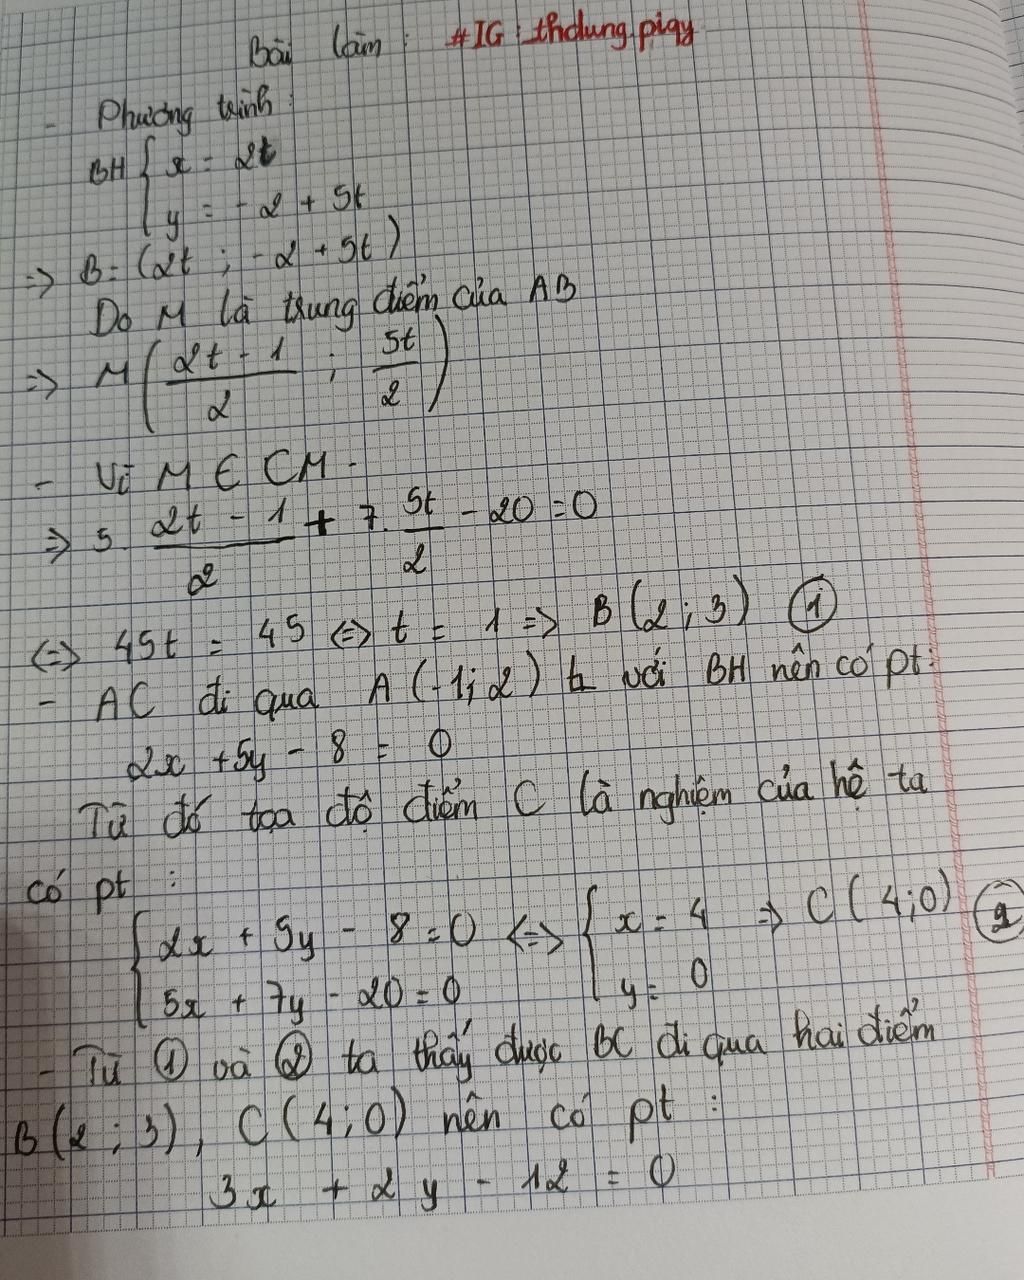 Bài làm : #IG : thdung.piqy
- Phương trình :
BH { x = 2t
y = -2 + 5t
=> B = (2t ; -2 + 5t)
Do M là trung điểm của AB
=> M ( (2t - 1)/2 ; 5t/2 )
- Vì M ∈ CM.
=> 5. (2t - 1)/2 + 7. 5t/2 - 20 = 0
<=> 45t = 45 <=> t = 1 => B(2 ; 3) ①
- AC đi qua A(-1; 2) ⊥ với BH nên có pt:
2x + 5y - 8 = 0
Từ đó tọa độ điểm C là nghiệm của hệ ta
có pt :
{ 2x + 5y - 8 = 0 <=> { x = 4 => C(4;0) ②
5x + 7y - 20 = 0 y = 0
- Từ ① và ② ta thấy được BC đi qua hai điểm
B(2 ; 3), C(4 ; 0) nên có pt :
3x + 2y - 12 = 0